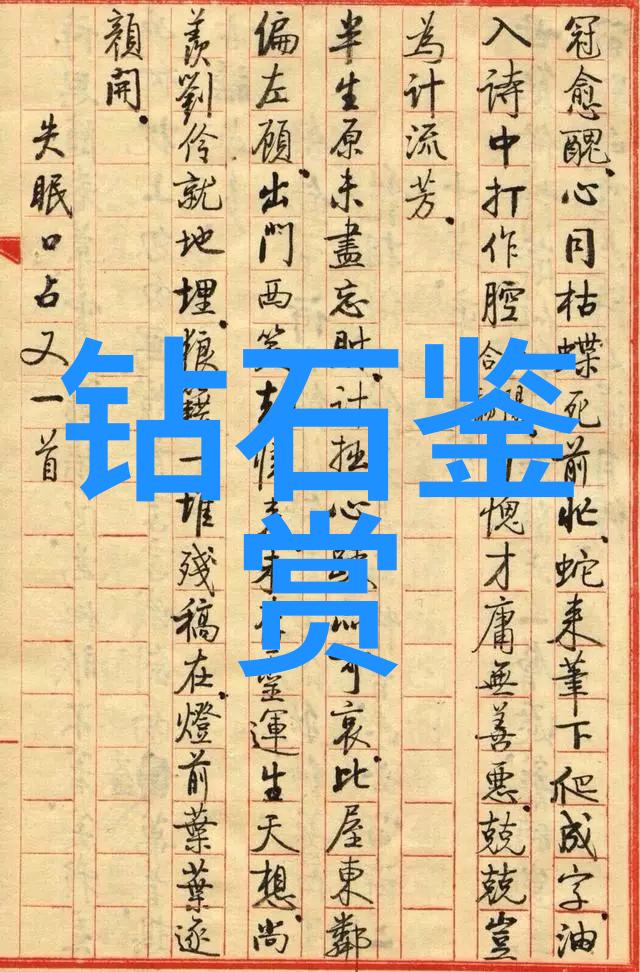 冠愈醜、心同枯蝶死前忙、蛇来筆下爬成字、油
入诗中打作腔 愧才庸無善悪、兢兢豈
為计流芳、
半生原未盡忘 计拙心 可哀、比屋東鄰
偏左顾、出門西笑 運生天想、尚
羡劉伶就地埋、狼籍一堆殘稿在、燈前葉葉逐
顏開、
失眠口占又一首
钻石鉴
赏